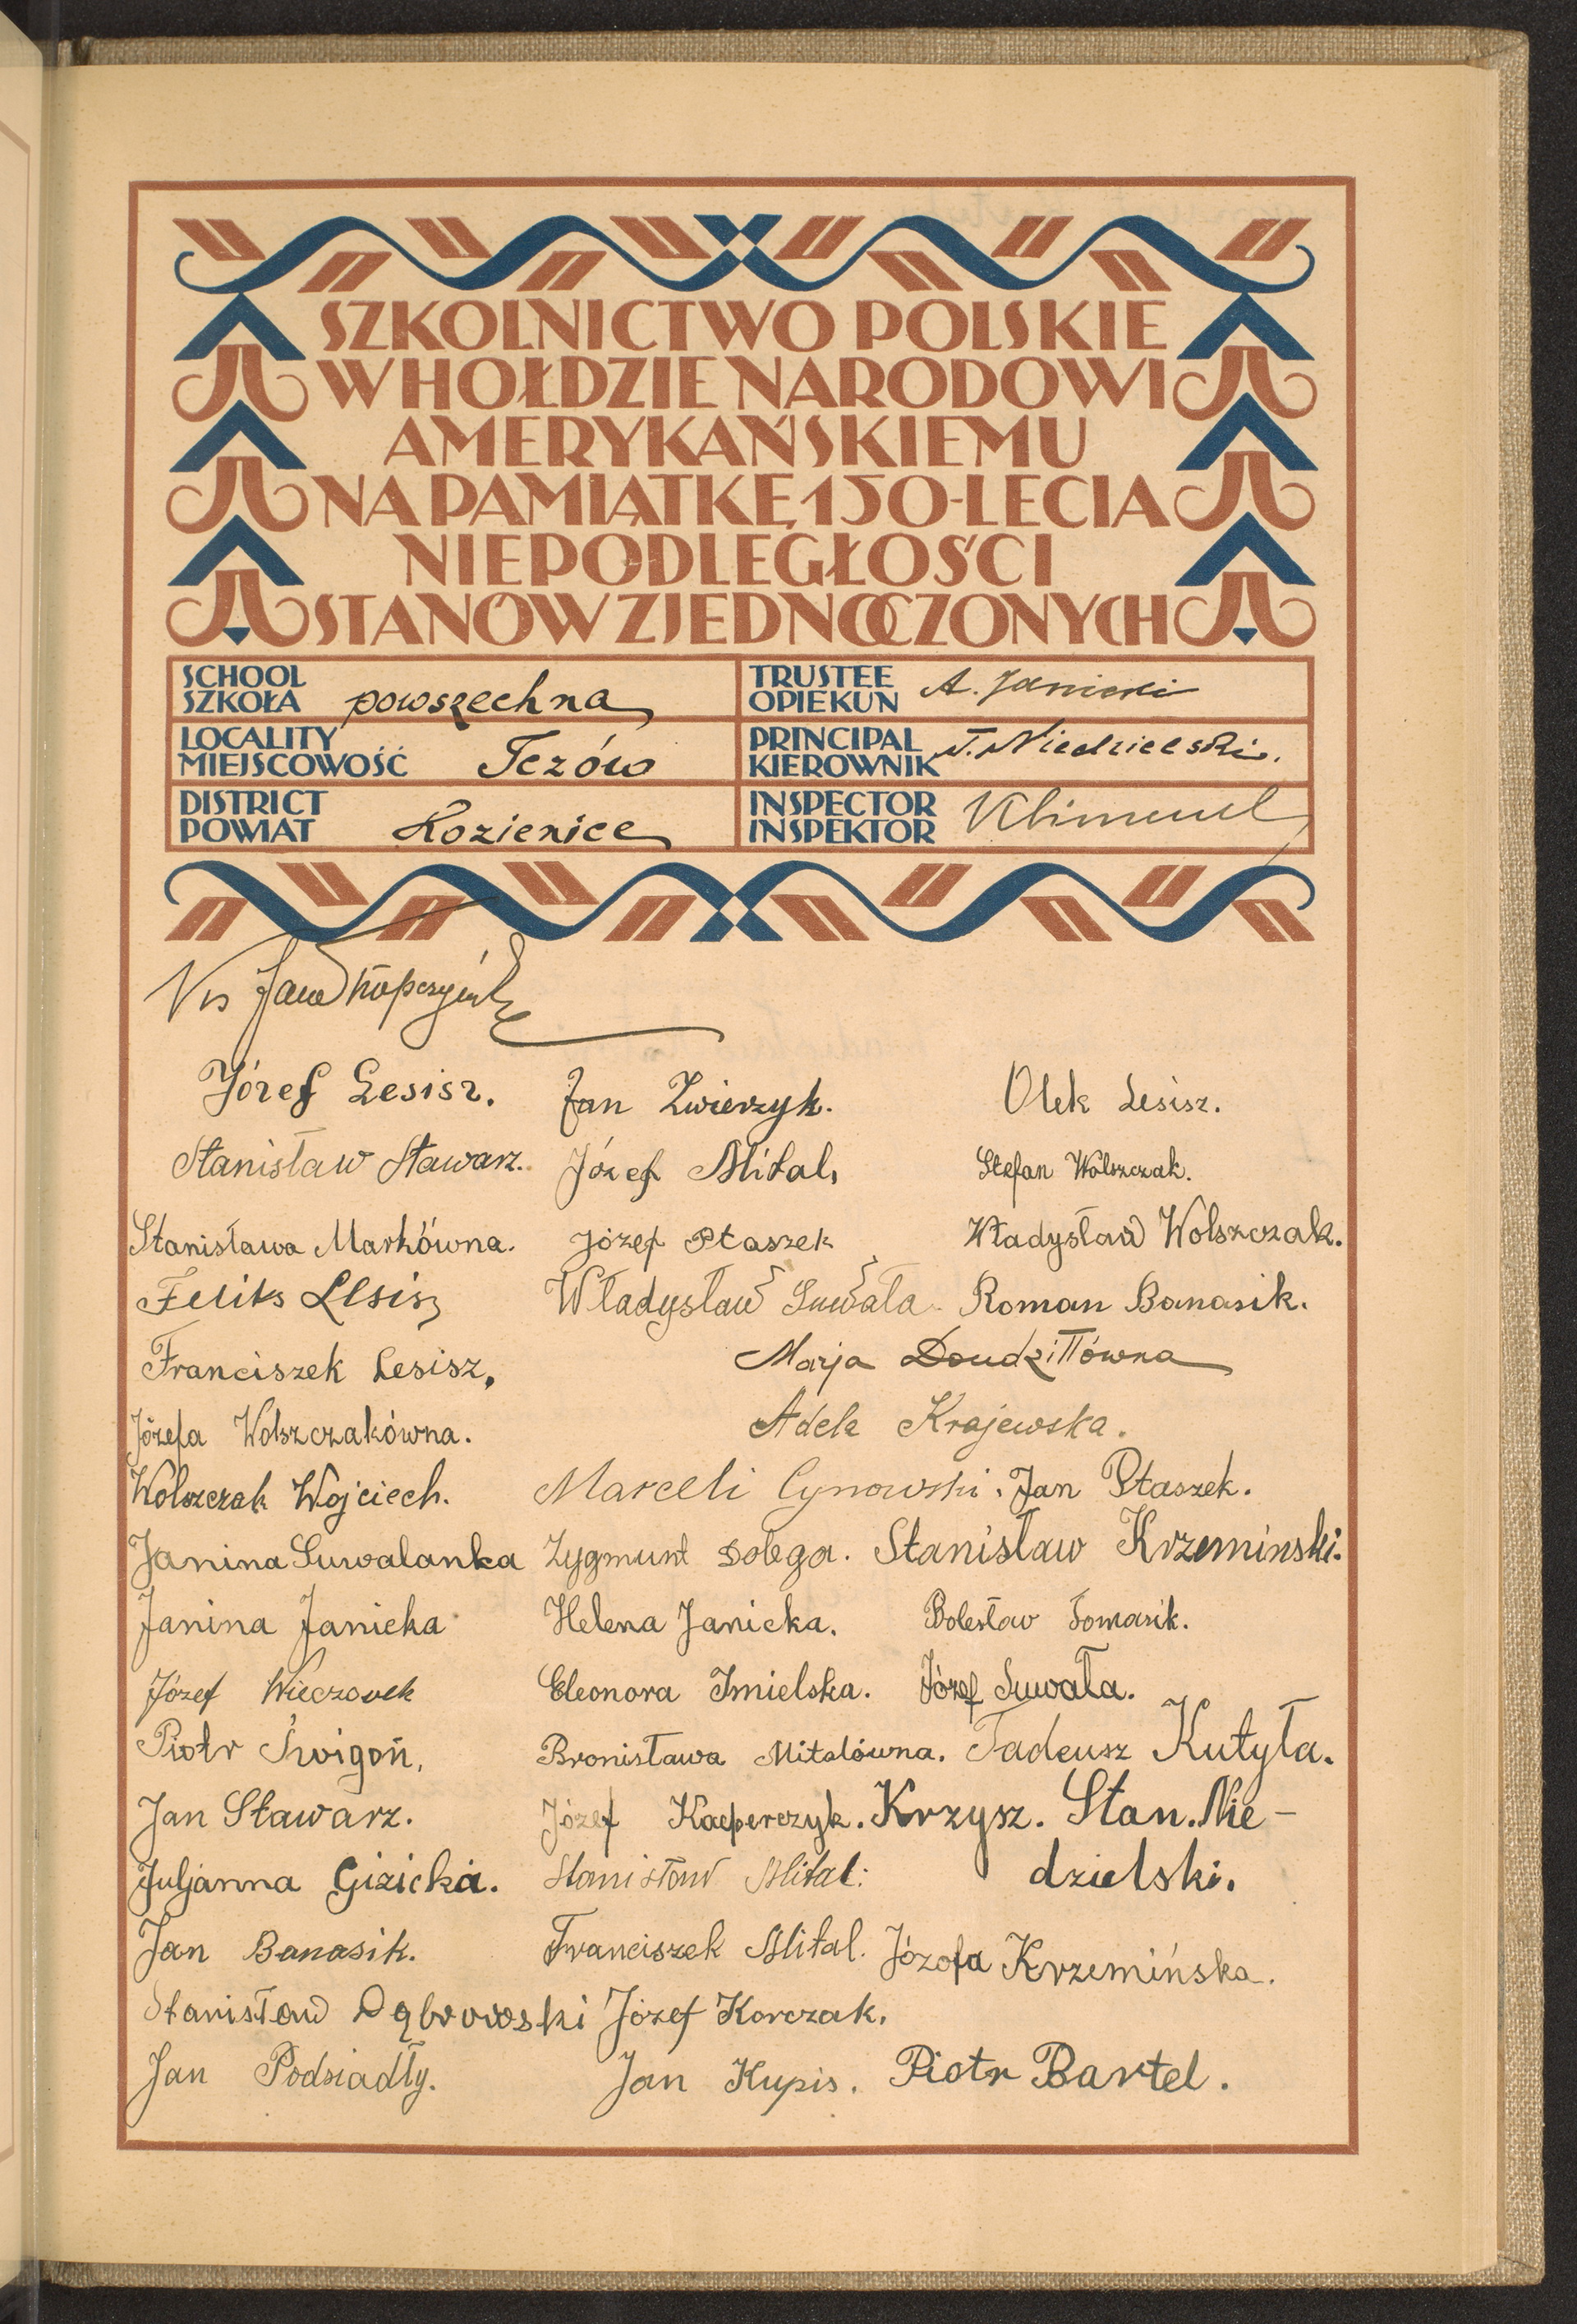 SZKOLNICTWO POLSKIE
W HOŁDZIE NARODOWI
AMERYKAŃSKIEMU
NA PAMIĄTKĘ 150-LECIA
NIEPODLEGŁOŚCI
STANÓW ZJEDNOCZONYCH
SCHOOL
SZKOŁA powszechna
TRUSTEE
OPIEKUN A. Janicki
LOCALITY
MIEJSCOWOŚĆ Tczów
PRINCIPAL
KIEROWNIK T. Niedzielski.
DISTRICT
POWIAT Kozienice
INSPECTOR
INSPEKTOR
Józef Lesisz. Jan Zwierzyk. Olek Lesisz.
Stanisław Stawarz. Józef Mital, Stefan Wolszczak.
Stanisława Markówna. Józef Ptaszek Władysław Wolszczak.
Feliks Lesisz Władysław Suwała Roman Banasik.
Franciszek Lesisz, Marja Doudziłłówna
Józefa Wolszczakówna. Adela Krajewska.
Wolszczak Wojciech. Marceli Cynowski. Jan Ptaszek.
Janina Suwalanka Zygmunt Dolega. Stanisław Krzeminski.
Janina Janicka Helena Janicka. Bolesław Tomasik.
Józef Wieczorek Eleonora Imielska. Józef Suwała.
Piotr Świgoń. Bronisława Mitalówna. Tadeusz Kutyła.
Jan Stawarz. Józef Kacperczyk. Krzysz. Stan. Nie-
Juljanna Gizicka. Stanisław Mital. dzielski.
Jan Banasik. Franciszek Mital. Józefa Krzemińska.
Stanisław Dąbrowski Józef Korczak.
Jan Podsiadły. Jan Kupis. Piotr Bartel.